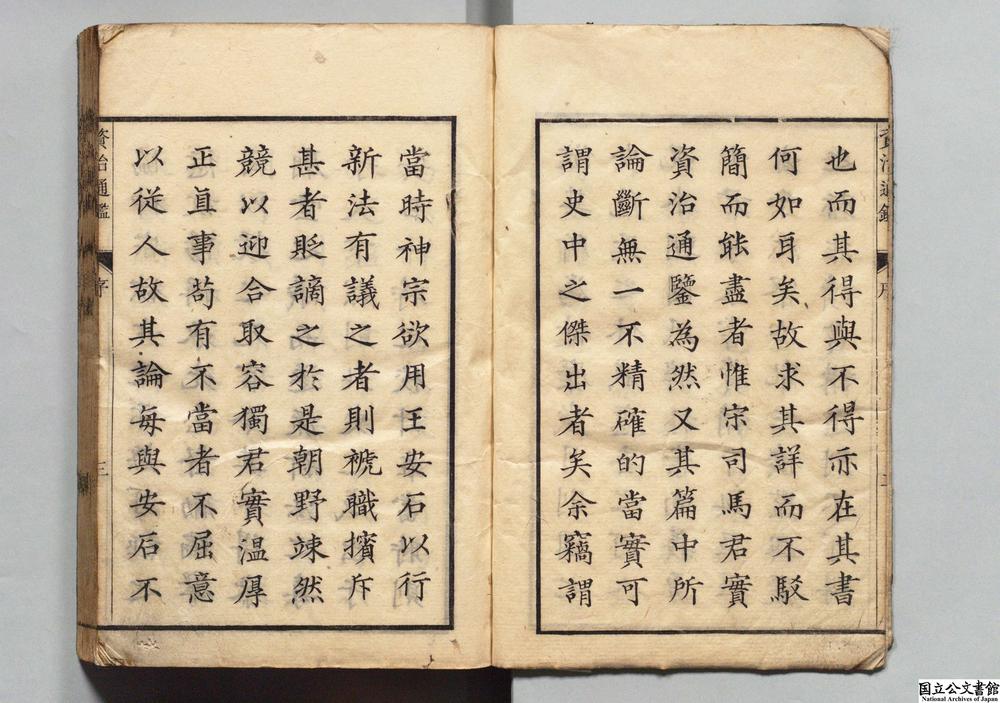 也而其得與不得亦在其書
何如耳矣故求其詳而不駁
簡而能盡者惟宋司馬君實
資治通鑒為然又其篇中所
論斷無一不精確的當實可
謂史中之傑出者矣余竊謂
當時神宗欲用王安石以行
新法有議之者則褫職擯斥
甚者貶謫之於是朝野竦然
競以迎合取容獨君實温厚
正直事苟有不當者不屈意
以從人故其論每與安石不
資治通鑑
序
三
国立公文書館
National Archives of Japan